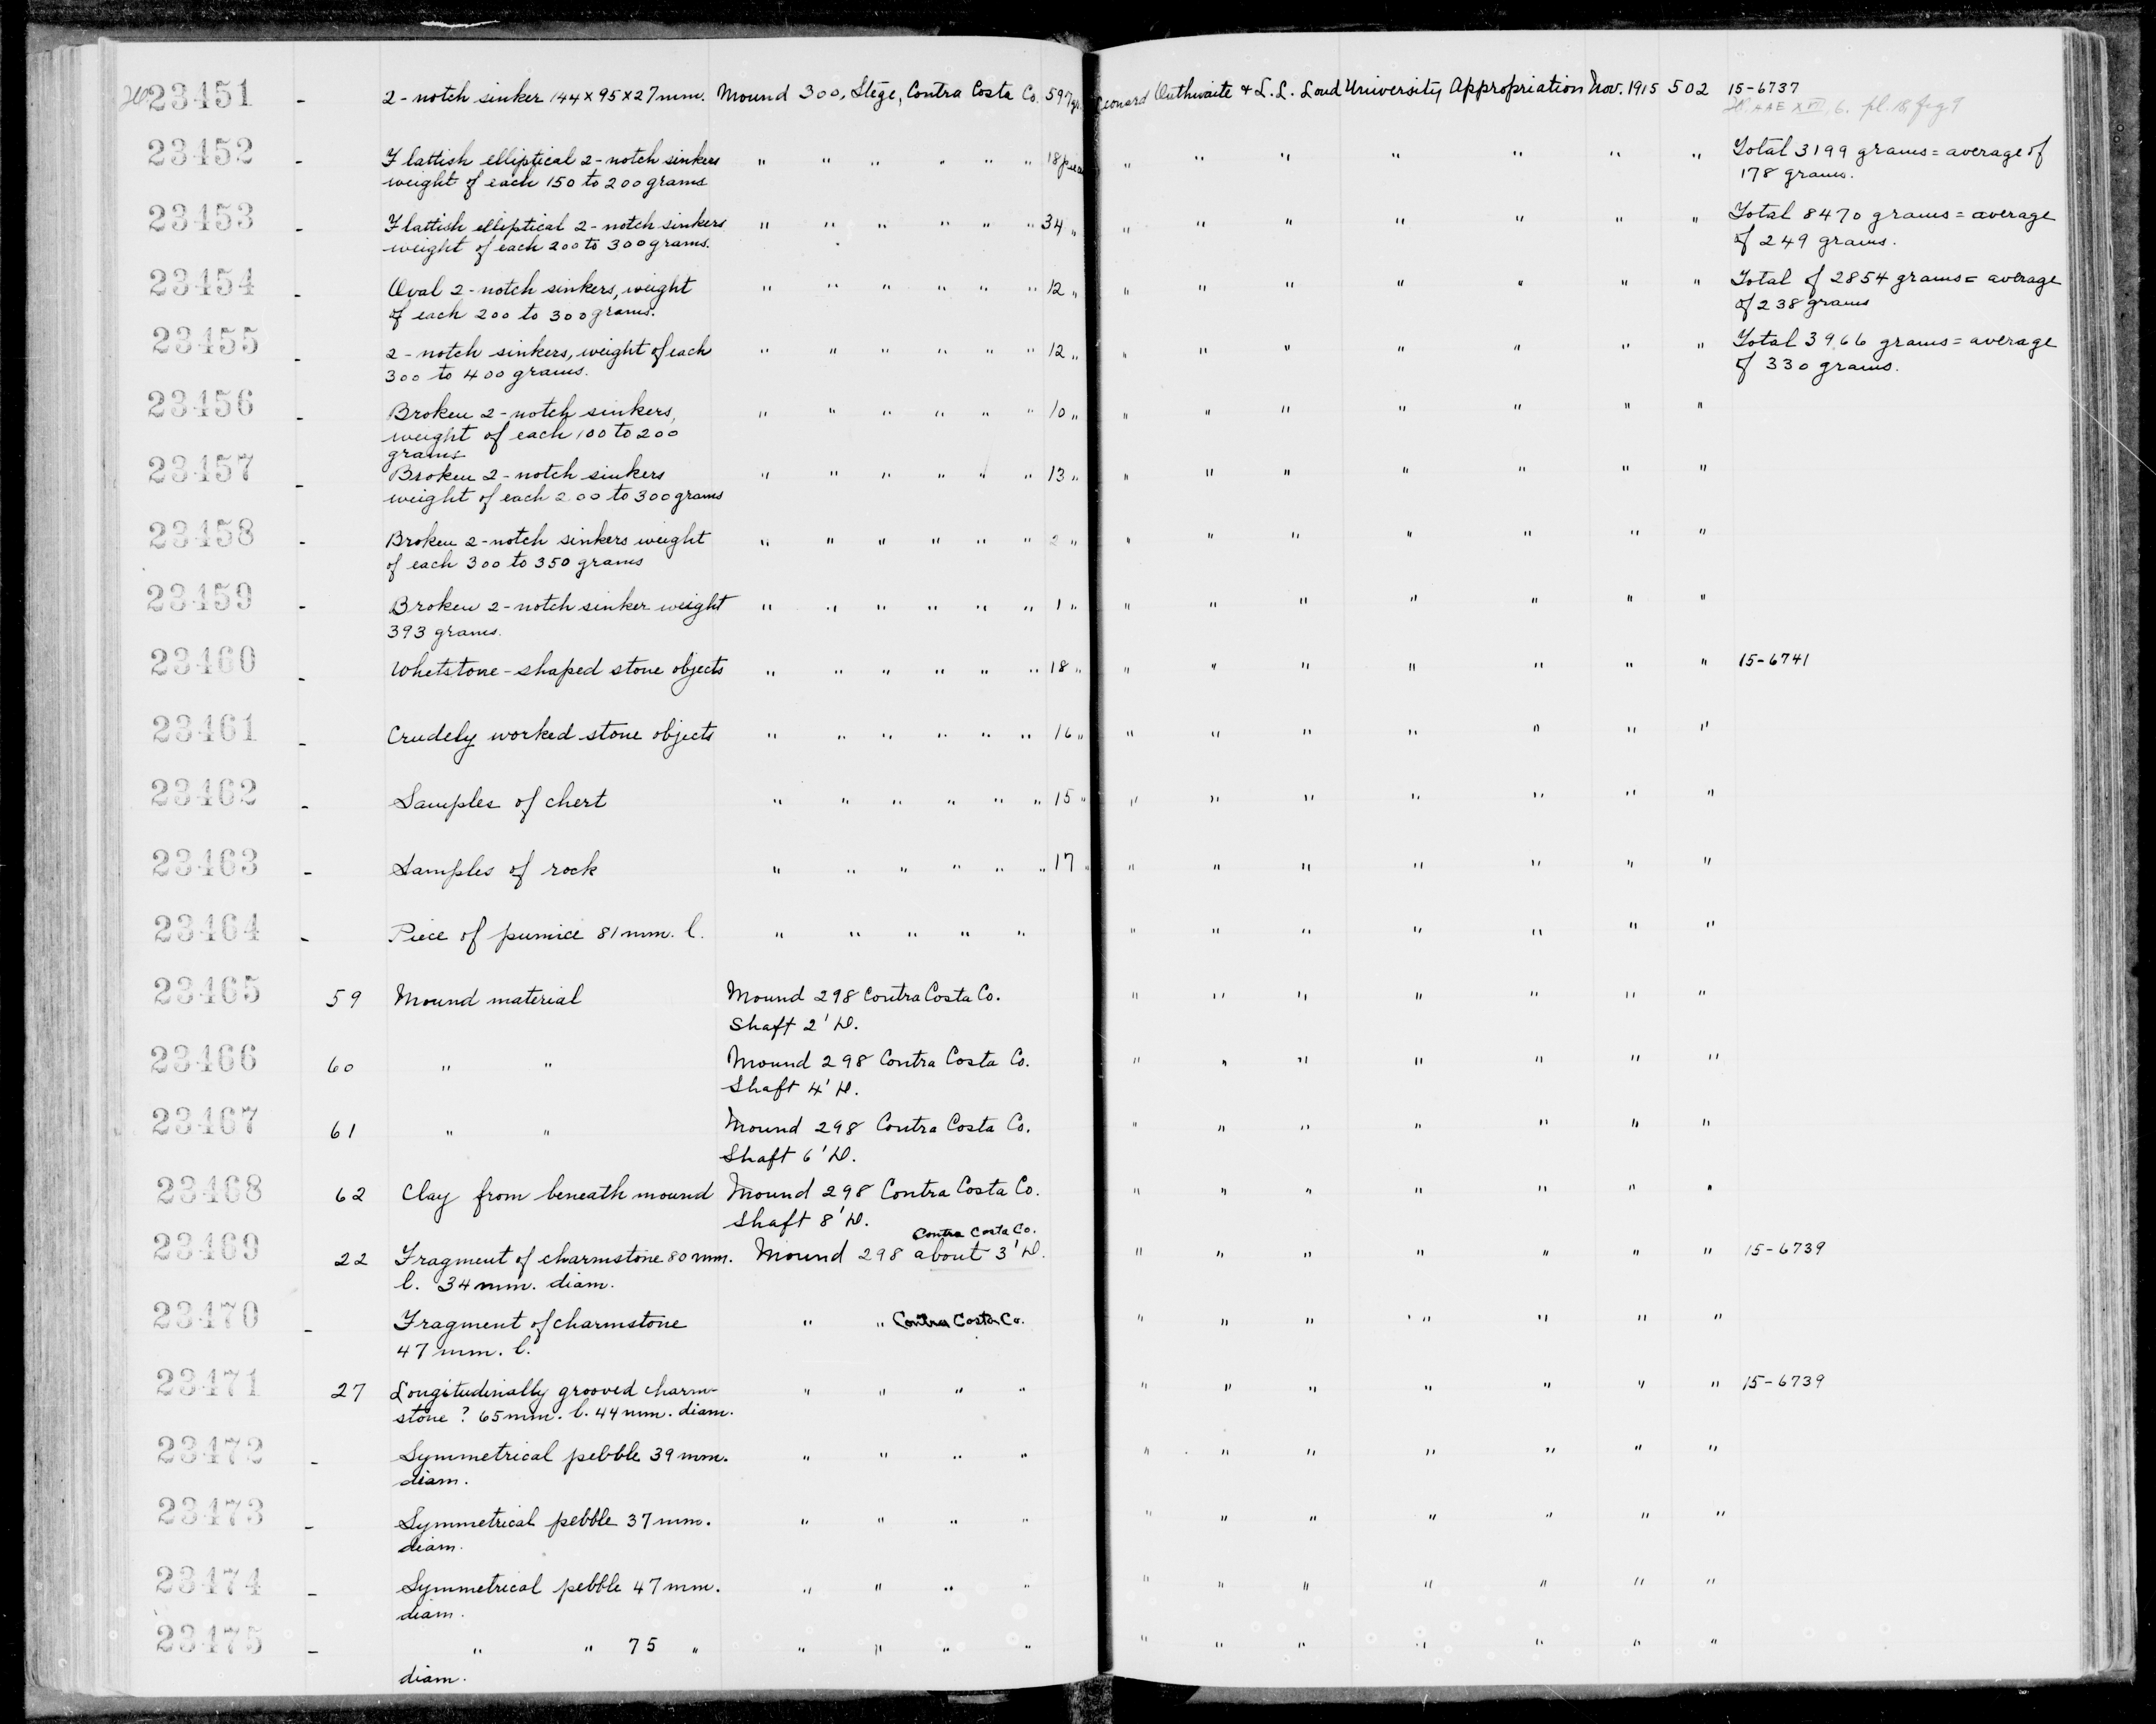 23451 - 2-notch sinker 144x95x27mm. Mound 300, Stege, Contra Costa Co. 597 gr. Leonard Outhwaite & L. L. Loud University Appropriation Nov. 1915 502 15-6737
AAE XVII, 6. pl. 18, fig 9
23452 - Flattish elliptical 2-notch sinkers " " " " " " 18 " " " " " " " Total 3199 grams = average of
weight of each 150 to 200 grams 178 grams.
23453 - Flattish elliptical 2-notch sinkers " " " " " " 34 " " " " " " " " Total 8470 grams = average
weight of each 200 to 300 grams. of 249 grams.
23454 - Oval 2-notch sinkers, weight " " " " " " 12 " " " " " " " " Total of 2854 grams = average
of each 200 to 300 grams. of 238 grams
23455 - 2-notch sinkers, weight of each " " " " " " 12 " " " " " " " " Total 3966 grams = average
300 to 400 grams. of 330 grams.
23456 - Broken 2-notch sinkers, " " " " " " 10 " " " " " " " "
weight of each 100 to 200
grams
23457 - Broken 2-notch sinkers " " " " " " 13 " " " " " " " "
weight of each 200 to 300 grams
23458 - Broken 2-notch sinkers weight " " " " " " 2 " " " " " " " "
of each 300 to 350 grams
23459 - Broken 2-notch sinker weight " " " " " " 1 " " " " " " " "
393 grams.
23460 - Whetstone-shaped stone objects " " " " " " 18 " " " " " " " " 15-6741
23461 - Crudely worked stone objects " " " " " " 16 " " " " " " " "
23462 - Samples of chert " " " " " " 15 " " " " " " " "
23463 - Samples of rock " " " " " " 17 " " " " " " " "
23464 - Piece of pumice 81mm. l. " " " " " " " " " " " "
23465 59 Mound material Mound 298 Contra Costa Co. " " " " " " "
Shaft 2' D.
23466 60 " " Mound 298 Contra Costa Co. " " " " " " "
Shaft 4' D.
23467 61 " " Mound 298 Contra Costa Co. " " " " " " "
Shaft 6' D.
23468 62 Clay from beneath mound Mound 298 Contra Costa Co. " " " " " " "
Shaft 8' D.
Contra Costa Co.
23469 22 Fragment of charmstone 80 mm. Mound 298 about 3' D. " " " " " " " 15-6739
l. 34mm. diam.
23470 - Fragment of charmstone " " Contra Costa Co. " " " " " " "
47 mm. l.
23471 27 Longitudinally grooved charm- " " " " " " " " " " " 15-6739
stone? 65mm. l. 44mm. diam.
23472 - Symmetrical pebble 39 mm. " " " " " " " " " " "
diam.
23473 - Symmetrical pebble 37 mm. " " " " " " " " " " "
diam.
23474 - Symmetrical pebble 47 mm. " " " " " " " " " " "
diam.
23475 - " " 75 " " " " " " " " " " " "
diam.